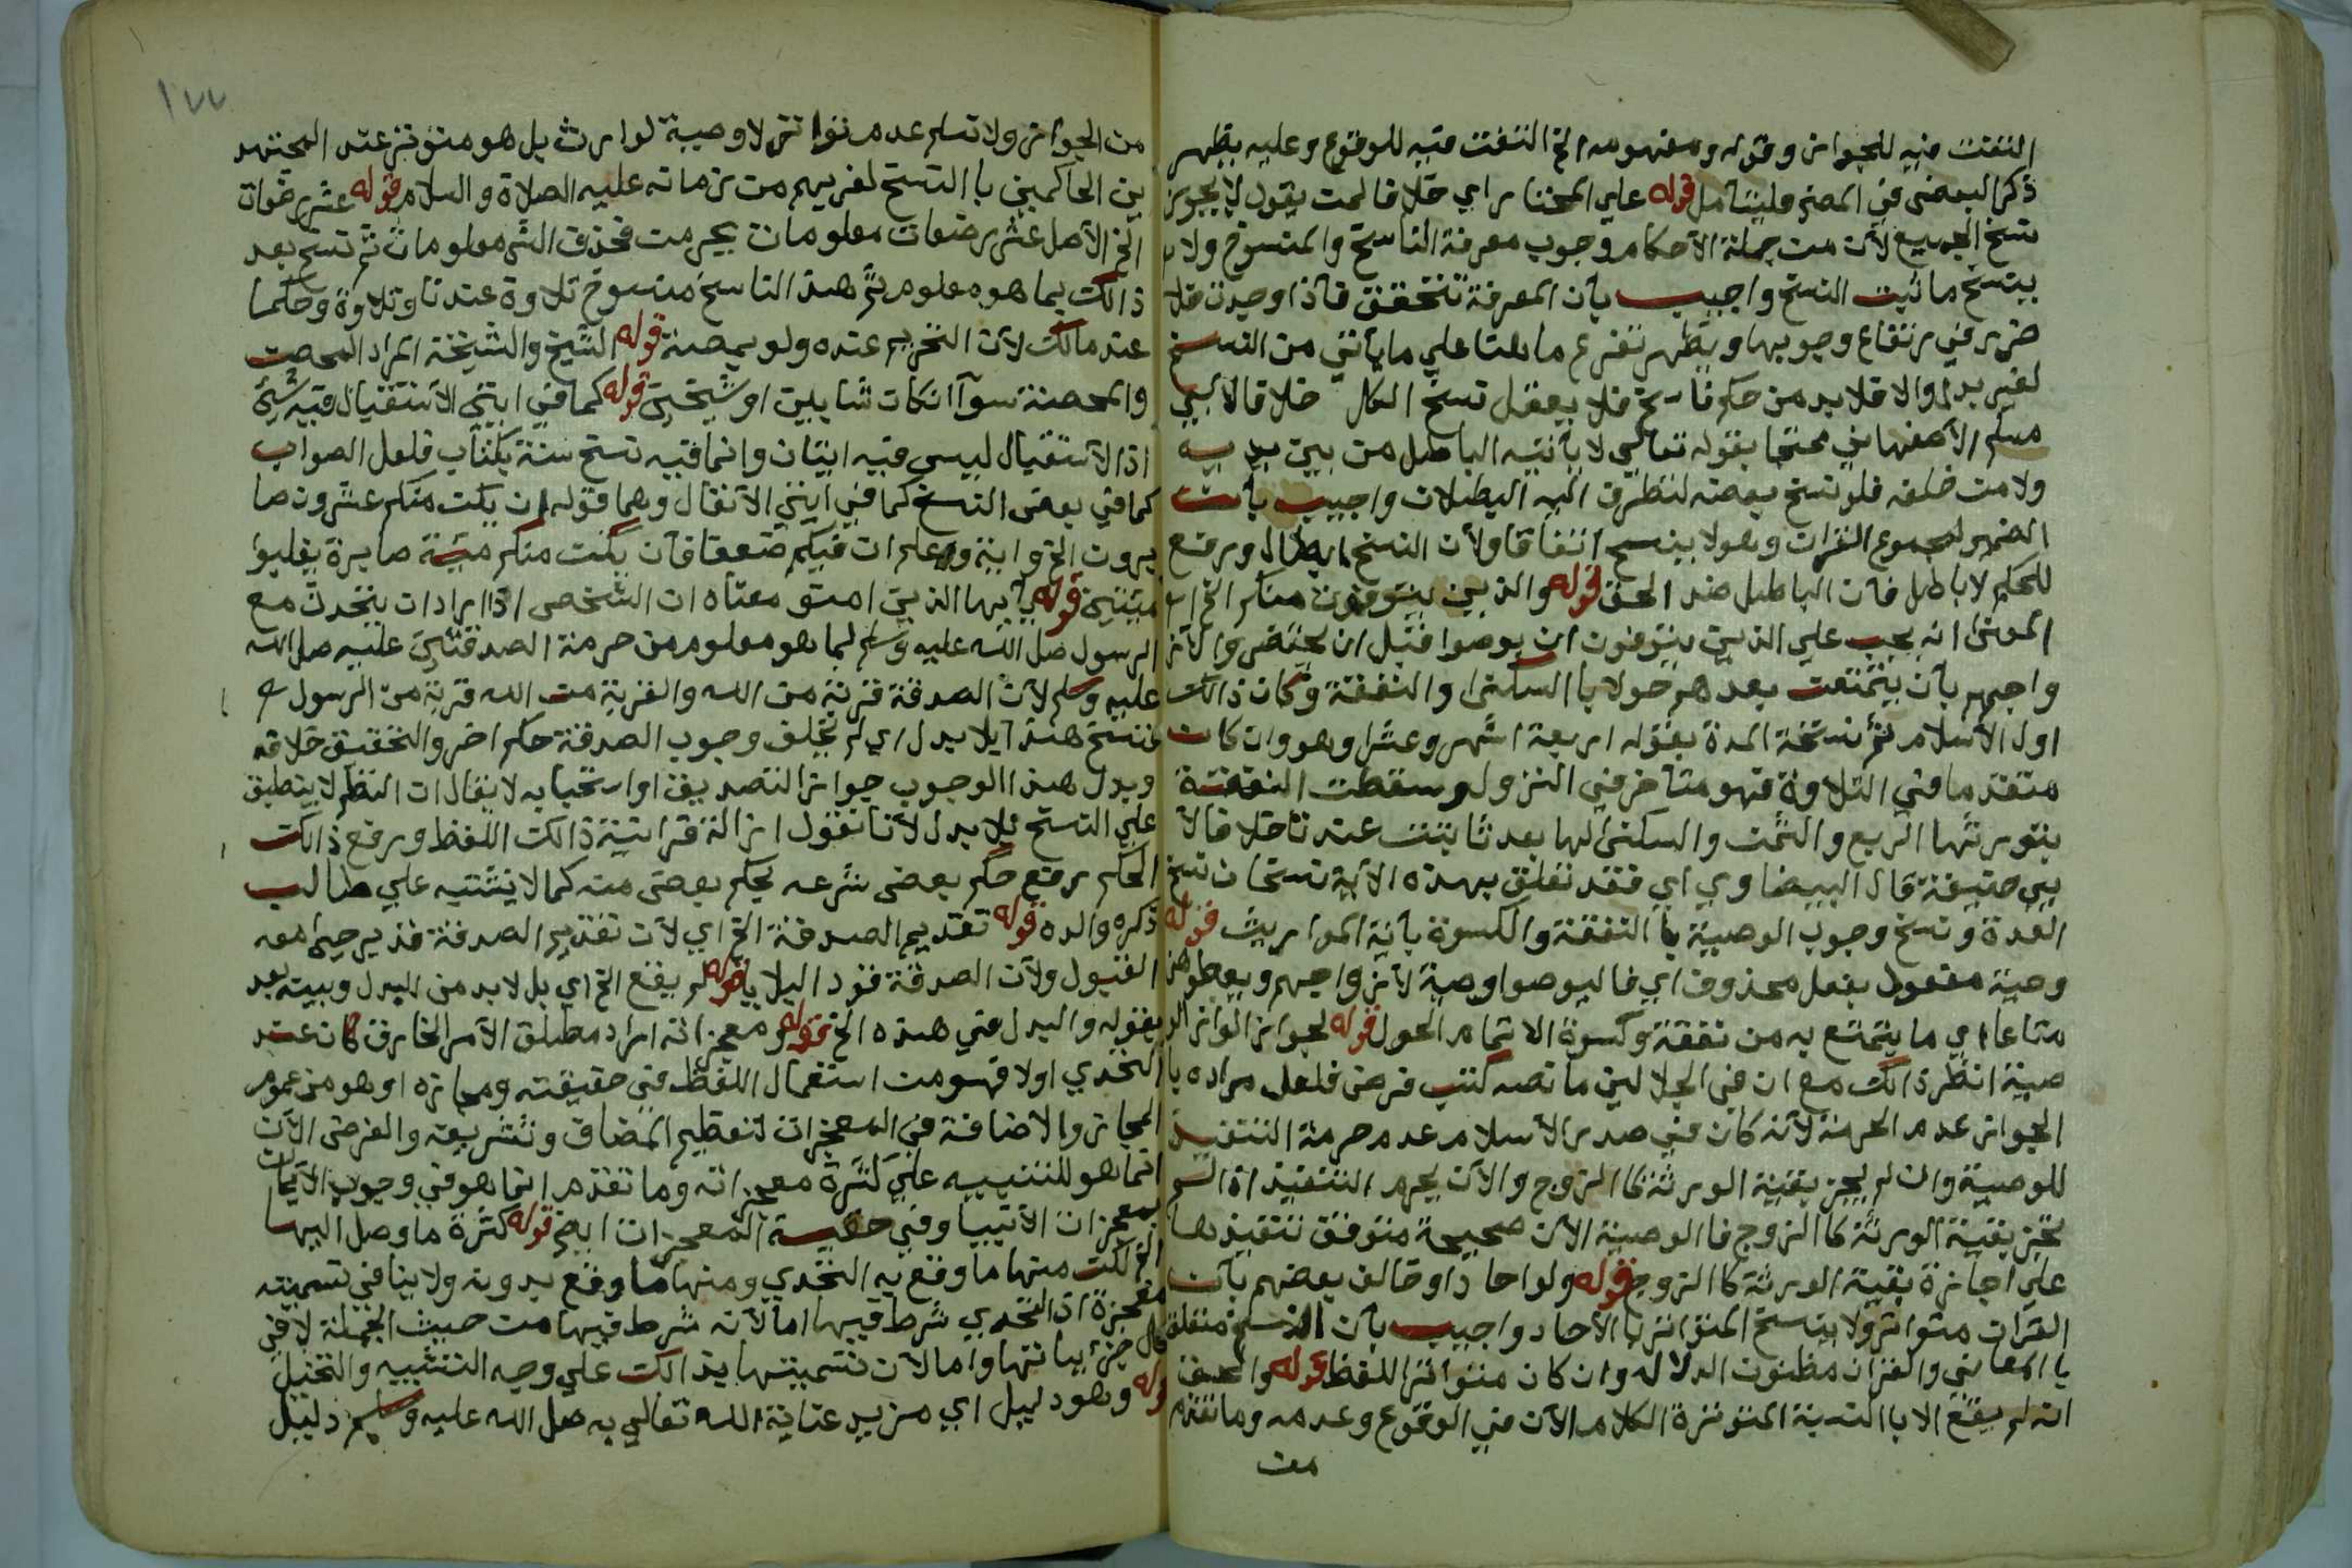 التفت فيه للجواز وقوله ومفهومه الخ التفت فيه للوقوع وعليه يظهر
ذكر البعض في المص فليتأمل قوله علي المختار اي خلافا لمن يقول لا يجوز
نسخ الجميع لأن من جملة الأحكام وجوب معرفة الناسخ والمنسوخ ولا
ينسخ ما ثبت النسخ واجيب بأن المعرفة تتحقق فأذا وجدت فلا
ضرر في رتفاع وجوبها ويظهر تفرع ما هنا علي ما يأتي من النسخ
لغير بدل والا فلا بد من حكم ناسخ فلا يعقل نسخ الكل خلافا لأبي
مسلم الأصفهاني محتجا بقوله تعالي لا يأتيه الباطل من بين يديه
ولا من خلفه فلو نسخ بعضه لتطرق اليه البطلان واجيب بأن
الضمير لمجموع القران وهو لا ينسخ اتفاقا ولأن النسخ ابطال ورفع
للحكم لا باطل فأن الباطل ضد الحق قوله والذين يتوفون منكم الخ
المعنى انه يجب علي الذين يتوفون ان يوصوا قبل ان يحتضروا لأز
واجهم بأن يتمتعن بعدهم حولا با السكنى والنفقة وكان ذالك
اول الأسلام ثم نسخة المدة بقوله اربعة اشهر وعشرا وهو وان كان
متقدما في التلاوة فهو متأخر في النزول وسقطت النفقة
بتوريثها الربع والثمن والسكنى لها بعد ثابت عندنا خلافا لأ
بي حنيفة قال البيضاوي اي فقد تعلق بهذه الأية نسخان نسخ
العدة ونسخ وجوب الوصية با النفقة والكسوة بأية المواريث قوله
وصية مفعول بفعل محذوف اي فاليوصوا وصية لأزواجهم ويعطوهن
متاعا اي ما يتمتع به من نفقة وكسوة الا تمام الحول قوله لجواز الوا
صية انظر ذالك مع ان في الجلالين ما نصه كتب فرض فلعل مراده با
الجواز عدم الحرمة لأنه كان في صدر الأسلام عدم حرمة التنفيذ
للوصية وان لم يجز بقية الورثة كا الزوج والأن يحرم التنفيذ اذا لم
تجز بقية الورثة كا الزوج فا الوصية الأن صحيحة متوقف تنفيذها
علي اجازة بقية الورثة كا الزوج قوله ولو احادا وخالف بعضهم بأن
القران متواتر ولا ينسخ المتواتر با الأحاد واجيب بأن النسخ متعلق
با المعاني والقران مظنون الدلاله وان كان متواتر اللفظ قوله والحق
انه لم يقع الا با السنة المتوترة الكلام الأن في الوقوع وعدمه وما تقدم
من
١٧٧
من الجواز ولا نسلم عدم تواتر لا وصية لوارث بل هو متوتر عند المجتهد
ين الحاكمين با النسخ لقربهم من زمانه عليه الصلاة والسلام قوله عشر رضعات
الخ الأصل عشر رضعات معلومات يحرمن فحذف الش معلومات ثم نسخ بعد
ذالك بما هو معلوم ثم هذا الناسخ منسوخ تلاوة عندنا وتلاوة وحكما
عند مالك لأن التحريم عنده ولو بمصة قوله الشيخ والشيخة المراد المحصن
والمحصنة سوآ اكان شابين او شيخين قوله كما في ايتي الأستقبال فيه شئ
اذا لأستقبال ليس فيه ايتان وانما فيه نسخ سنة بكتاب فلعل الصواب
كما في بعض النسخ كما في ايتي الأنفال وهما قوله ان يكن منكم عشرون صا
برون الخ واية وعلم ان فيكم ضعفا فأن يكن منكم مئية صابرة يغلبوا
مئتين قوله يأيها الذين امنو معناه ان الشخص اذا اراد ان يتحدث مع
الرسول صل الله عليه وسلم لما هو معلوم من حرمة الصدقة عليه صل الله
عليه وسلم لأن الصدقة قربة من الله والقربة من الله قربة من الرسول
فنسخ هذا بلا بدل اي لم يخلف وجوب الصدقة حكم اخر والتحقيق خلافه
وبدل هذا الوجوب جواز التصديق او استحبابه لا يقال ان النظم لا ينطبق
علي النسخ بلا بدل لأنا نقول ازالة قرانية ذالك اللفظ ورفع ذالك
الحكم رفع حكم بعض شرعه بحكم بعض منه كما لا يشتبه علي طالب
ذكره والده قوله تقديم الصدقة الخ اي لأن تقديم الصدقة قد يرجي معه
القبول ولأن الصدقة تزد البلايا قوله لم يقع الخ اي بل لا بد من البدل وبينه بعد
بقوله والبدل في هذه الخ قوله ومعجزاته اراد مطلق الأمر الخارق كان عند
التحدي اولا فهو من استعمال اللفظ في حقيقته ومجازه او هو من عموم
المجاز والاضافة في المعجزات لتعظيم المضاف وتشريفه والغرض الأن
انما هو للتنبيه علي كثرة معجزاته وما تقدم انما هو في وجوب الأيمان
بمعجزات الأنبيا وفي حقيقة المعجزات ايض قوله كثرة ما وصل اليها
الالك منها ما وقع به التحدي ومنها ما وقع بدونه ولا ينافي تسميته
معجزة اذ التحدي شرط فيها اما لأنه شرط فيها من حيث الجملة لا في
كل جزئياتها واما لأن تسميتها بذالك علي وجه التشبيه والتخيل
قوله وهو دليل اي مزيد عناية الله تعالي به صل الله عليه وسلم دليل